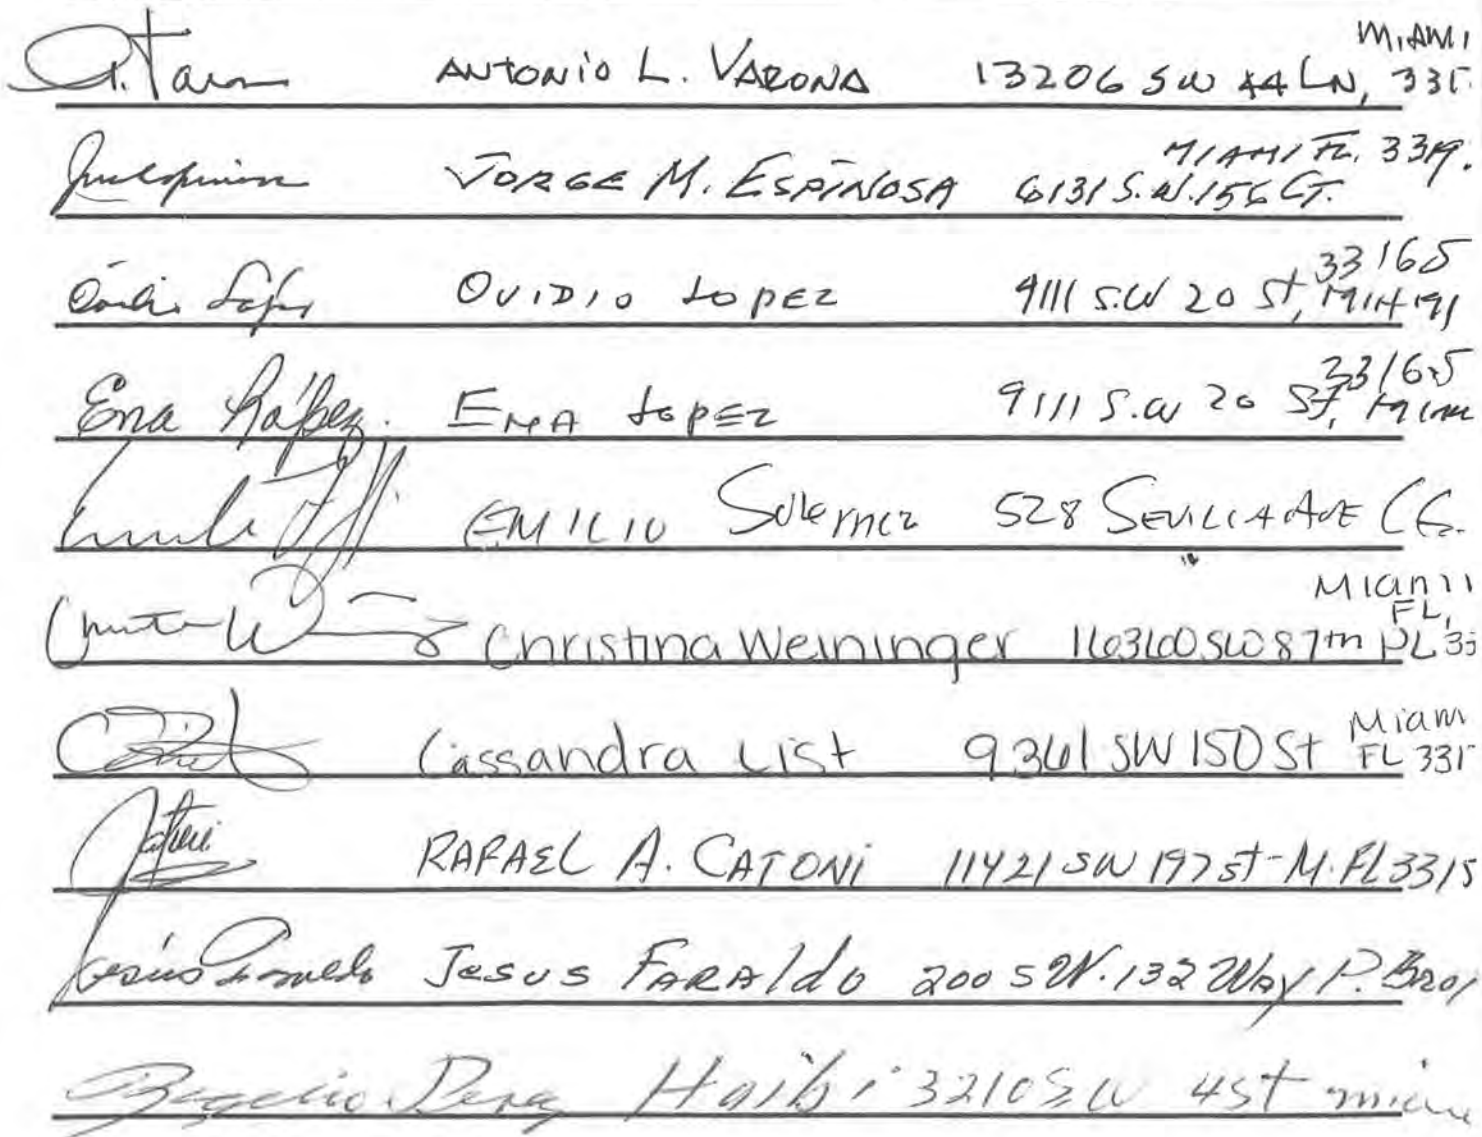 A. Varona ANTONIO L. VARONA 13206 SW 44 LN, MIAMI 331
JORGE M. ESPINOSA 6131 S.W. 156 CT. MIAMI FL. 3319.
Ovidio López OVIDIO LOPEZ 9111 S.W 20 St, 33165 MIAMI
Ena López. ENA LOPEZ 9111 S.W 20 St, 33165
EMILIO 528 SEVILLA AVE C.G.
Christina Weininger 16360 SW 87th PL Miami FL, 33
Cassandra List 9361 SW 150 St Miam FL 331
RAFAEL A. CATONI 11421 SW 197 st - M. FL 3315
Jesús Faraldo JESUS FARALDO 200 SW. 132 Way P.
Rogelio Perez 3210 S W 4 St